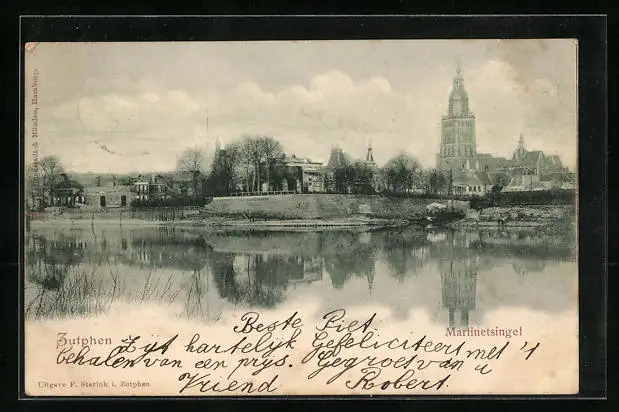 Zutphen
Martinetsingel
Beste Piet
Zijt hartelijk Gefeliciteert met 't
behalen van een prijs. Gegroet van u
Vriend Robert.
Uitgave F. Sterink i. Zutphen
& Münden, Hamburg.